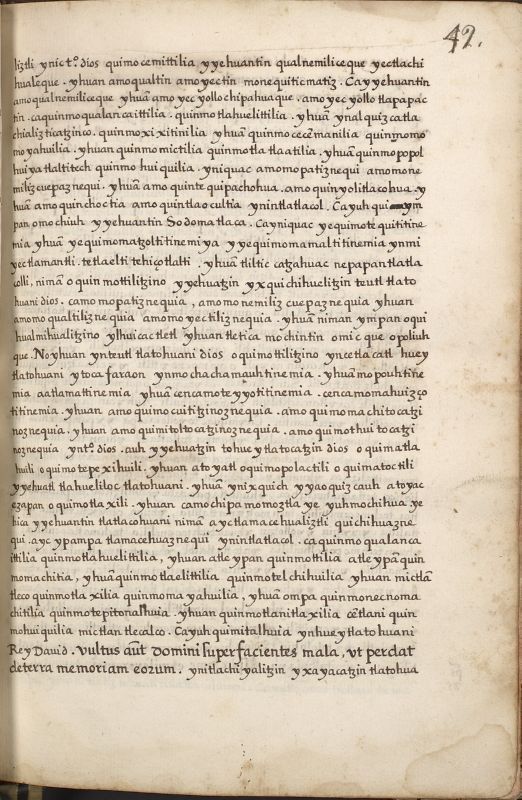 42.
liztli ynict.º dios quimocemittilia yyehuantin qualnemiliceque yectlachi
hualeque . yhuan amo qualtin amo yectin monequiticmatiz . Ca yyehuantin
amo qualnemiliceque yhuā amo yec yollo chipahuaque . amo yec yollo tlapapac
tin . ca quinmo qualancaittilia . quinmo tlahuelittilia . yhuā ynalquizcatla
chializticatzinco . quinmo xixitinilia yhuā quinmo cecēmanilia quinmomo
moyahuilia . yhuan quinmo mictilia quinmotla tlaatilia . yhuā quinmo popol
hui ya tlaltitech quinmo huiquilia . yniquac amo mopatiznequi amo mone
miliz cuepaz nequi . yhuā amo quin tequipachohua . amo quin yolitlacohua . y
huā amo quin choctia amo quin tlaocultia ynin tlatlacol . Ca yuh qui ym
pan omochiuh yyehuantin Sodoma tlaca . Ca yniquac yequimotequititine
mia yhuā yequimomatzoltitinemi ya yyequimomamaltitinemia ynmi
yectlamantli . tetlaelti tehiçotlalti . yhuā tliltic catzahuac nepapan tlatla
colli, nimā oquinmottilitzino yyehuatzin yxquichihuelitzin teutl tlato
huani dios . ca mo mopatiznequia , amo monemiliz cuepaznequia yhuan
amo qualtiliznequia amo moyectiliznequia . yhuā niman ympan oqui
hualmihualitzino ylhuicac tletl yhuan tletica mochintin omicque opoliuh
que. No yhuan ynteutl tlatohuani dios oquimottilitzino yncetlacatl huey
tlatohuani ytoca faraon ynmochachamauhtinemia . yhuā mopouhtine
mia aatlamattinemia yhuā cenca moteyyotitinemia . cenca momahuizço
titinemia . yhuan amo quimocuititzinoznequia . amo quimomachitocatzi
noznequia . yhuan amo quimitoltocatzinoznequia . amo quimothuitocatzi
noznequia yntº. dios . auh yyehuatzin tohueytlatocatzin dios oquimatla
huili oquimotepexihuili . yhuan atoyatl oquimopolactili oquimatoctili
yyehuatl tlahueliloc tlatohuani . yhuā ynixquich yyaoquizcauh atoyac
ezapan oquimotlaxili . yhuan ca mochipa momoztlaye yuhmochihua ye
hica yyehuantin tlatlacohuani nimā ayc tlamacehualiztli quichihuazne
qui . ayc ypampa tlamacehuaznequi ynintlatlacol . ca quinmo qualanca
ittilia quinmotlahuelittilia , yhuan atle ypan quinmottilia atle ypā quin
momachitia , yhuā quinmotlaelittilia quinmotelchihuilia yhuan mictlā
tleco quinmotlaxilia quinmomayahuilia , yhuā ompa quinmonecnoma
chitilia quinmotepitonalhuia . yhuan quinmotlanitlaxilia cētlani quin
mohuiquilia mictlan tlecalco . Ca yuh quimitalhuia ynhuey tlatohuani
Rey David . vultus aūt domini super facientes mala, vt perdat
de terra memoriam eorum . ynitlachīyalitzin yxayacatzin tlatohua